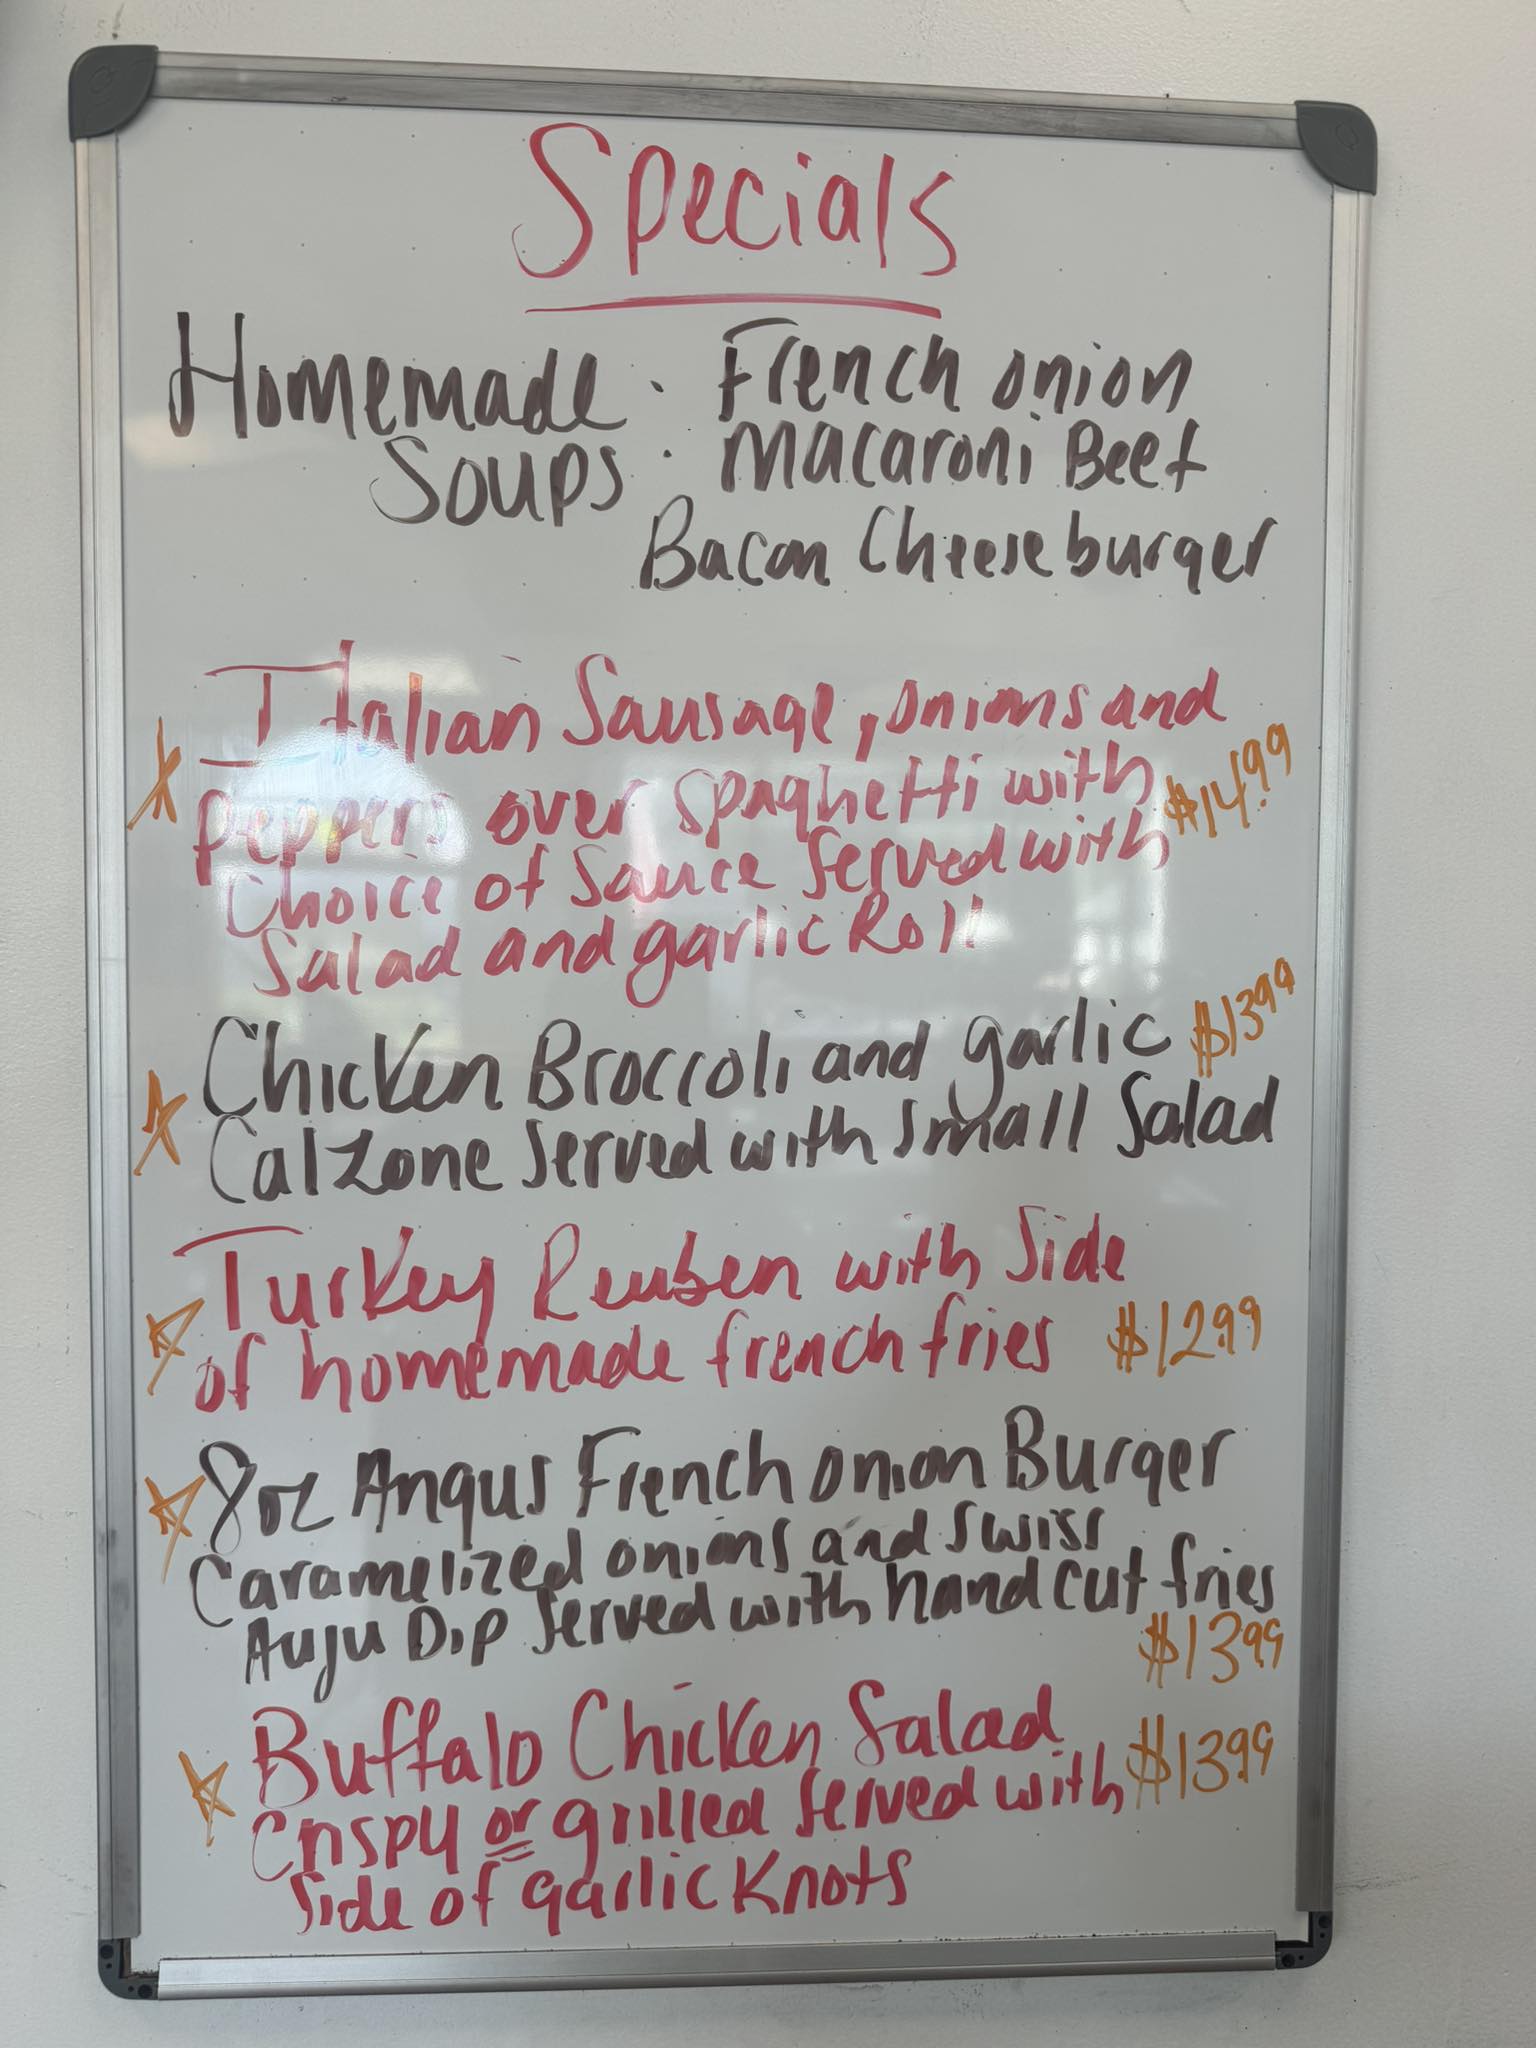 Specials
Homemade · French onion
Soups · Macaroni Beef
Bacon Cheeseburger
Italian Sausage, onions and
Peppers over spaghetti with $14.99
Choice of Sauce Served with
Salad and garlic Roll
Chicken Broccoli and garlic $13.99
Calzone Served with small Salad
Turkey Reuben with Side
of homemade french fries $12.99
8oz Angus French onion Burger
Caramelized onions and swiss
Auju Dip Served with hand cut fries
$13.99
Buffalo Chicken Salad
Crispy or grilled Served with $13.99
Side of garlic Knots